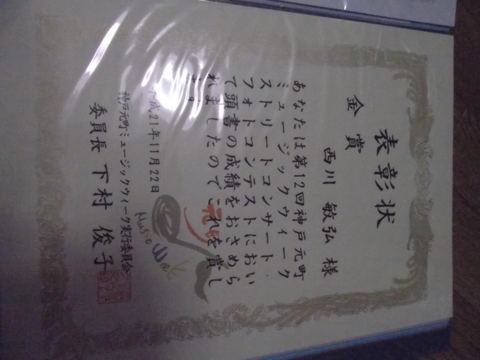 表彰状
金賞
西川 敏弘 様
あなたは第12回神戸元町
ミュージックウィーク
ストリートコンサート・
フォトコンテストにおい
て頭書の成績をおさめら
れましたのでこれを賞し
ます
平成21年11月22日
神戸元町ミュージックウィーク実行委員会
委員長 下村 俊子